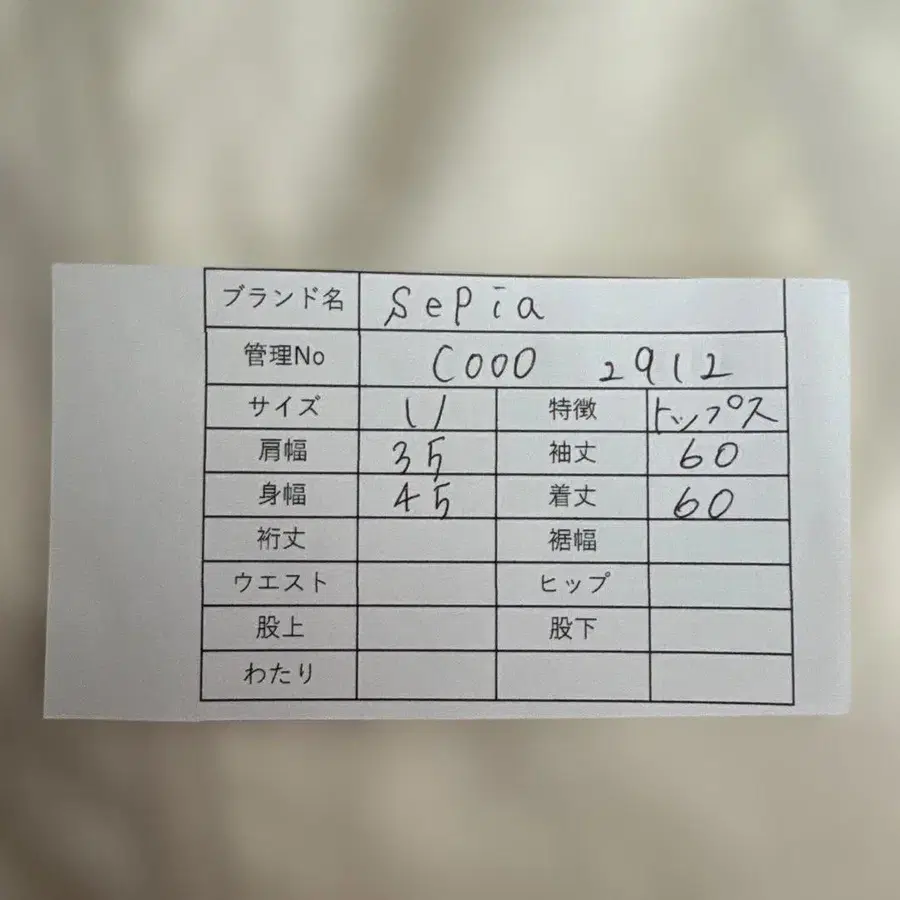 ブランド名 Sepia
管理No C000 2912
サイズ 11 特徴 トップス
肩幅 35 袖丈 60
身幅 45 着丈 60
裄丈 裾幅
ウエスト ヒップ
股上 股下
わたり